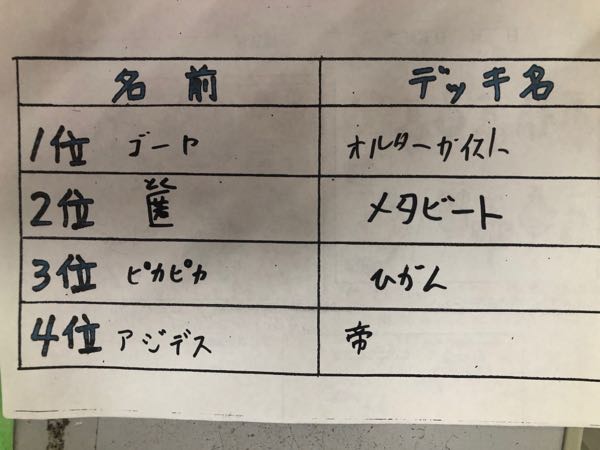 名前 デッキ名
1位 ゴーヤ オルターガイスト
2位 匿 とく メタビート
3位 ピカピカ ひがん
4位 アジデス 帝